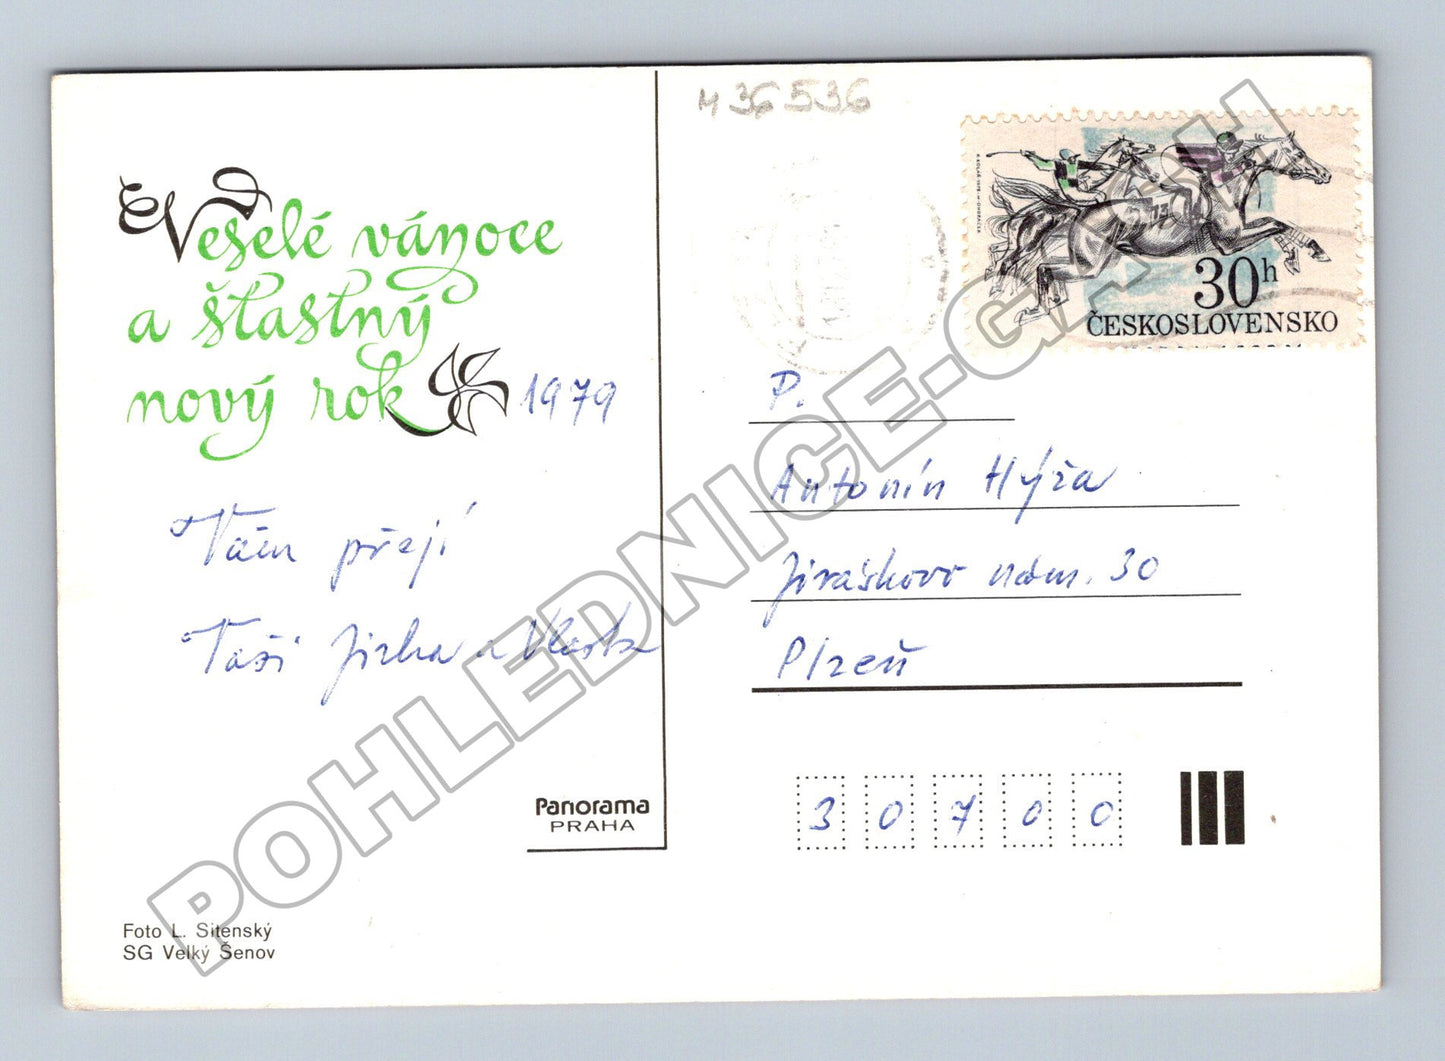 Veselé vánoce
a šťastný
nový rok 1979
Vám přejí
Vaši Jirka a Vlasta
Panorama
PRAHA
Foto L. Sitenský
SG Velký Šenov
M 36536
30h
ČESKOSLOVENSKO
P.
Antonín Hýža
Jiráskovo nám. 30
Plzeň
30700
POHLEDNICE-GARH